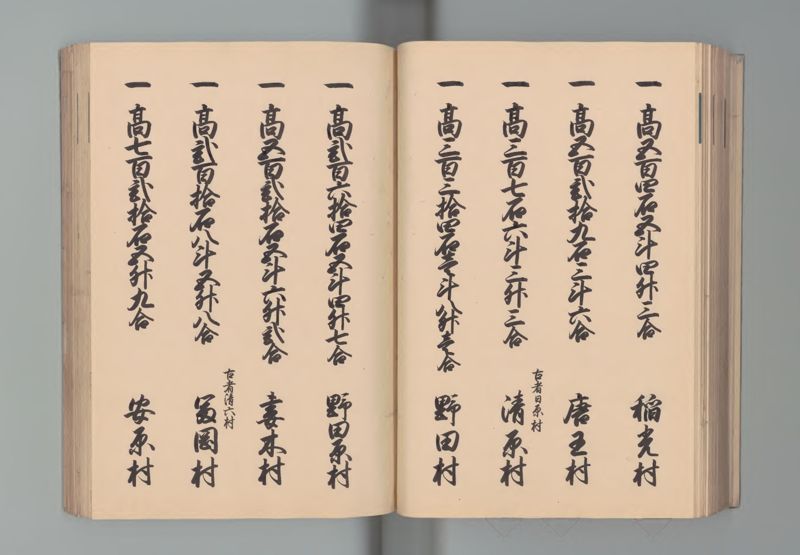 一 高五百四石五斗四升三合 稲光村
一 高五百弐拾九石三斗六合 唐王村
古者日原村
一 高三百七石六斗三升三合 清原村
一 高三百三拾四石壱斗八升壱合 野田村
一 高弐百六拾四石五斗四升七合 野田原村
一 高五百弐拾石五斗六升弐合 妻木村
古者清六村
一 高弐百拾石八斗五升八合 富岡村
一 高七百弐拾石五升九合 安原村